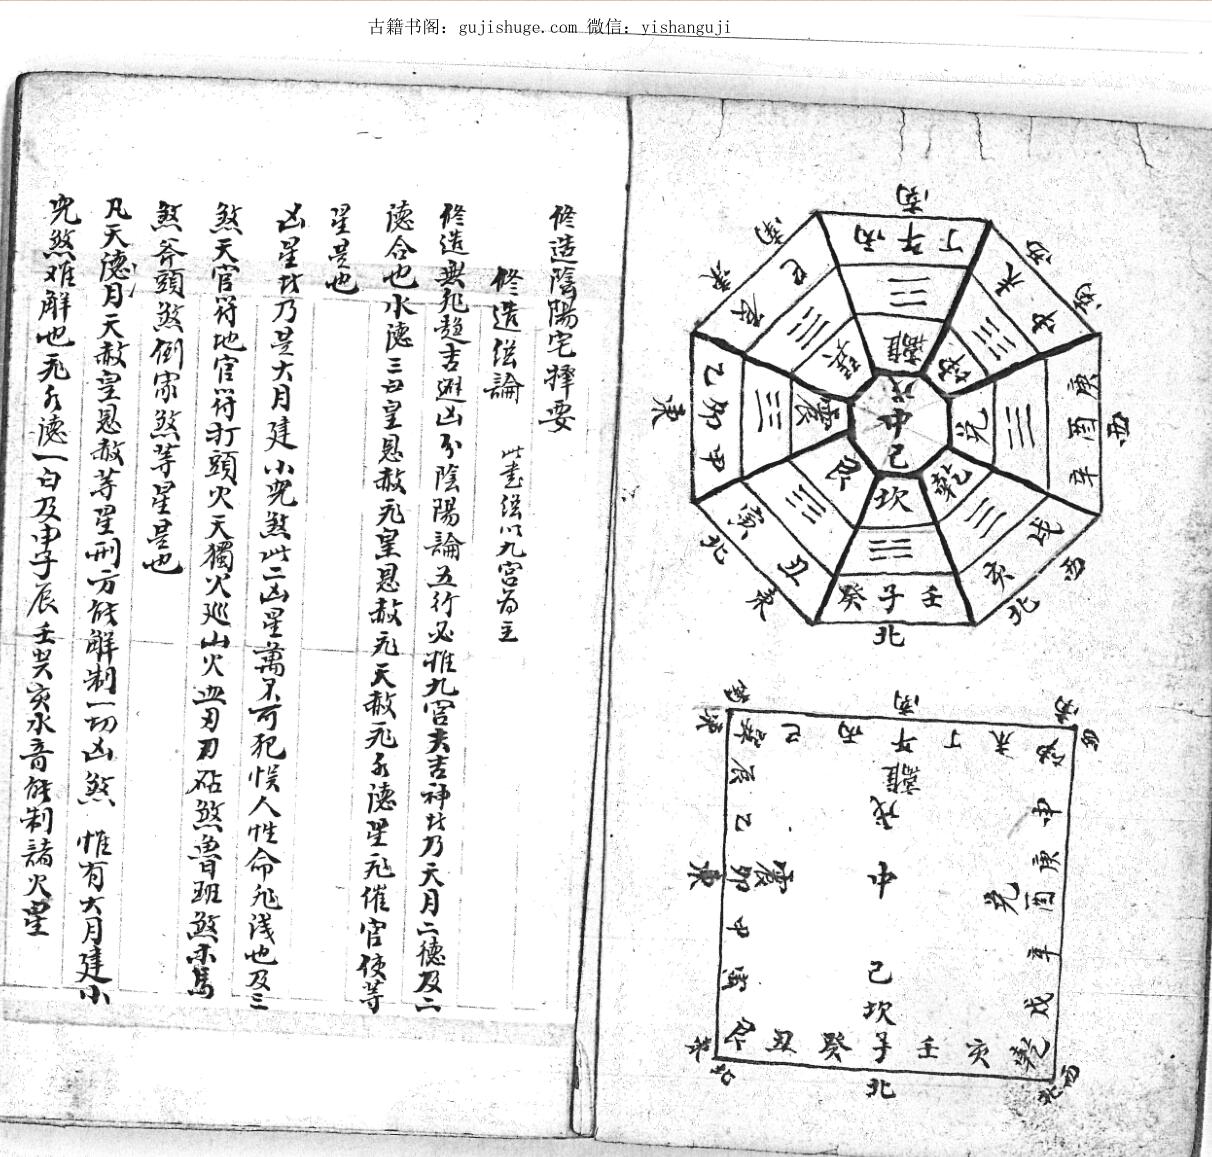 古籍书阁：gujishuge.com 微信：yishanguji
南
丁 午 丙
離
巳
辰
巽
東
南
未
申
坤
西
南
乙 卯 甲
震
東
戊
中
己
庚
酉
辛
兌
西
寅
丑
艮
東
北
癸 子 壬
坎
北
戌
亥
乾
西
北
南
東
南
巽 巳 丙 午 丁 未 坤
西
南
離
辰
乙
東 卯 震
甲
寅
戊
中
己
坎
申
庚
兌 酉
辛
戌
艮 丑 癸 子 壬 亥 乾
東
北
北
西
北
修造陰陽宅擇要
修造总論 此書总以九宮为主
修造無非趋吉避凶分陰陽論五行必惟九宮夫吉神者乃天月二德及二
德合也水德三白皇恩赦飛皇恩赦飛天赦飛水德星飛催官使等
星是也
凶星者乃是大月建小児煞此二凶星萬不可犯悮人性命非浅也及三
煞天官符地官符打頭火天獨火巡山火血刃刀砧煞魯班煞木馬
煞斧頭煞倒家煞等星是也
凡天德月天赦皇恩赦等星刑方能解制一切凶煞 惟有大月建小
児煞难解也飛水德一白及申子辰壬癸亥水音能制諸火星